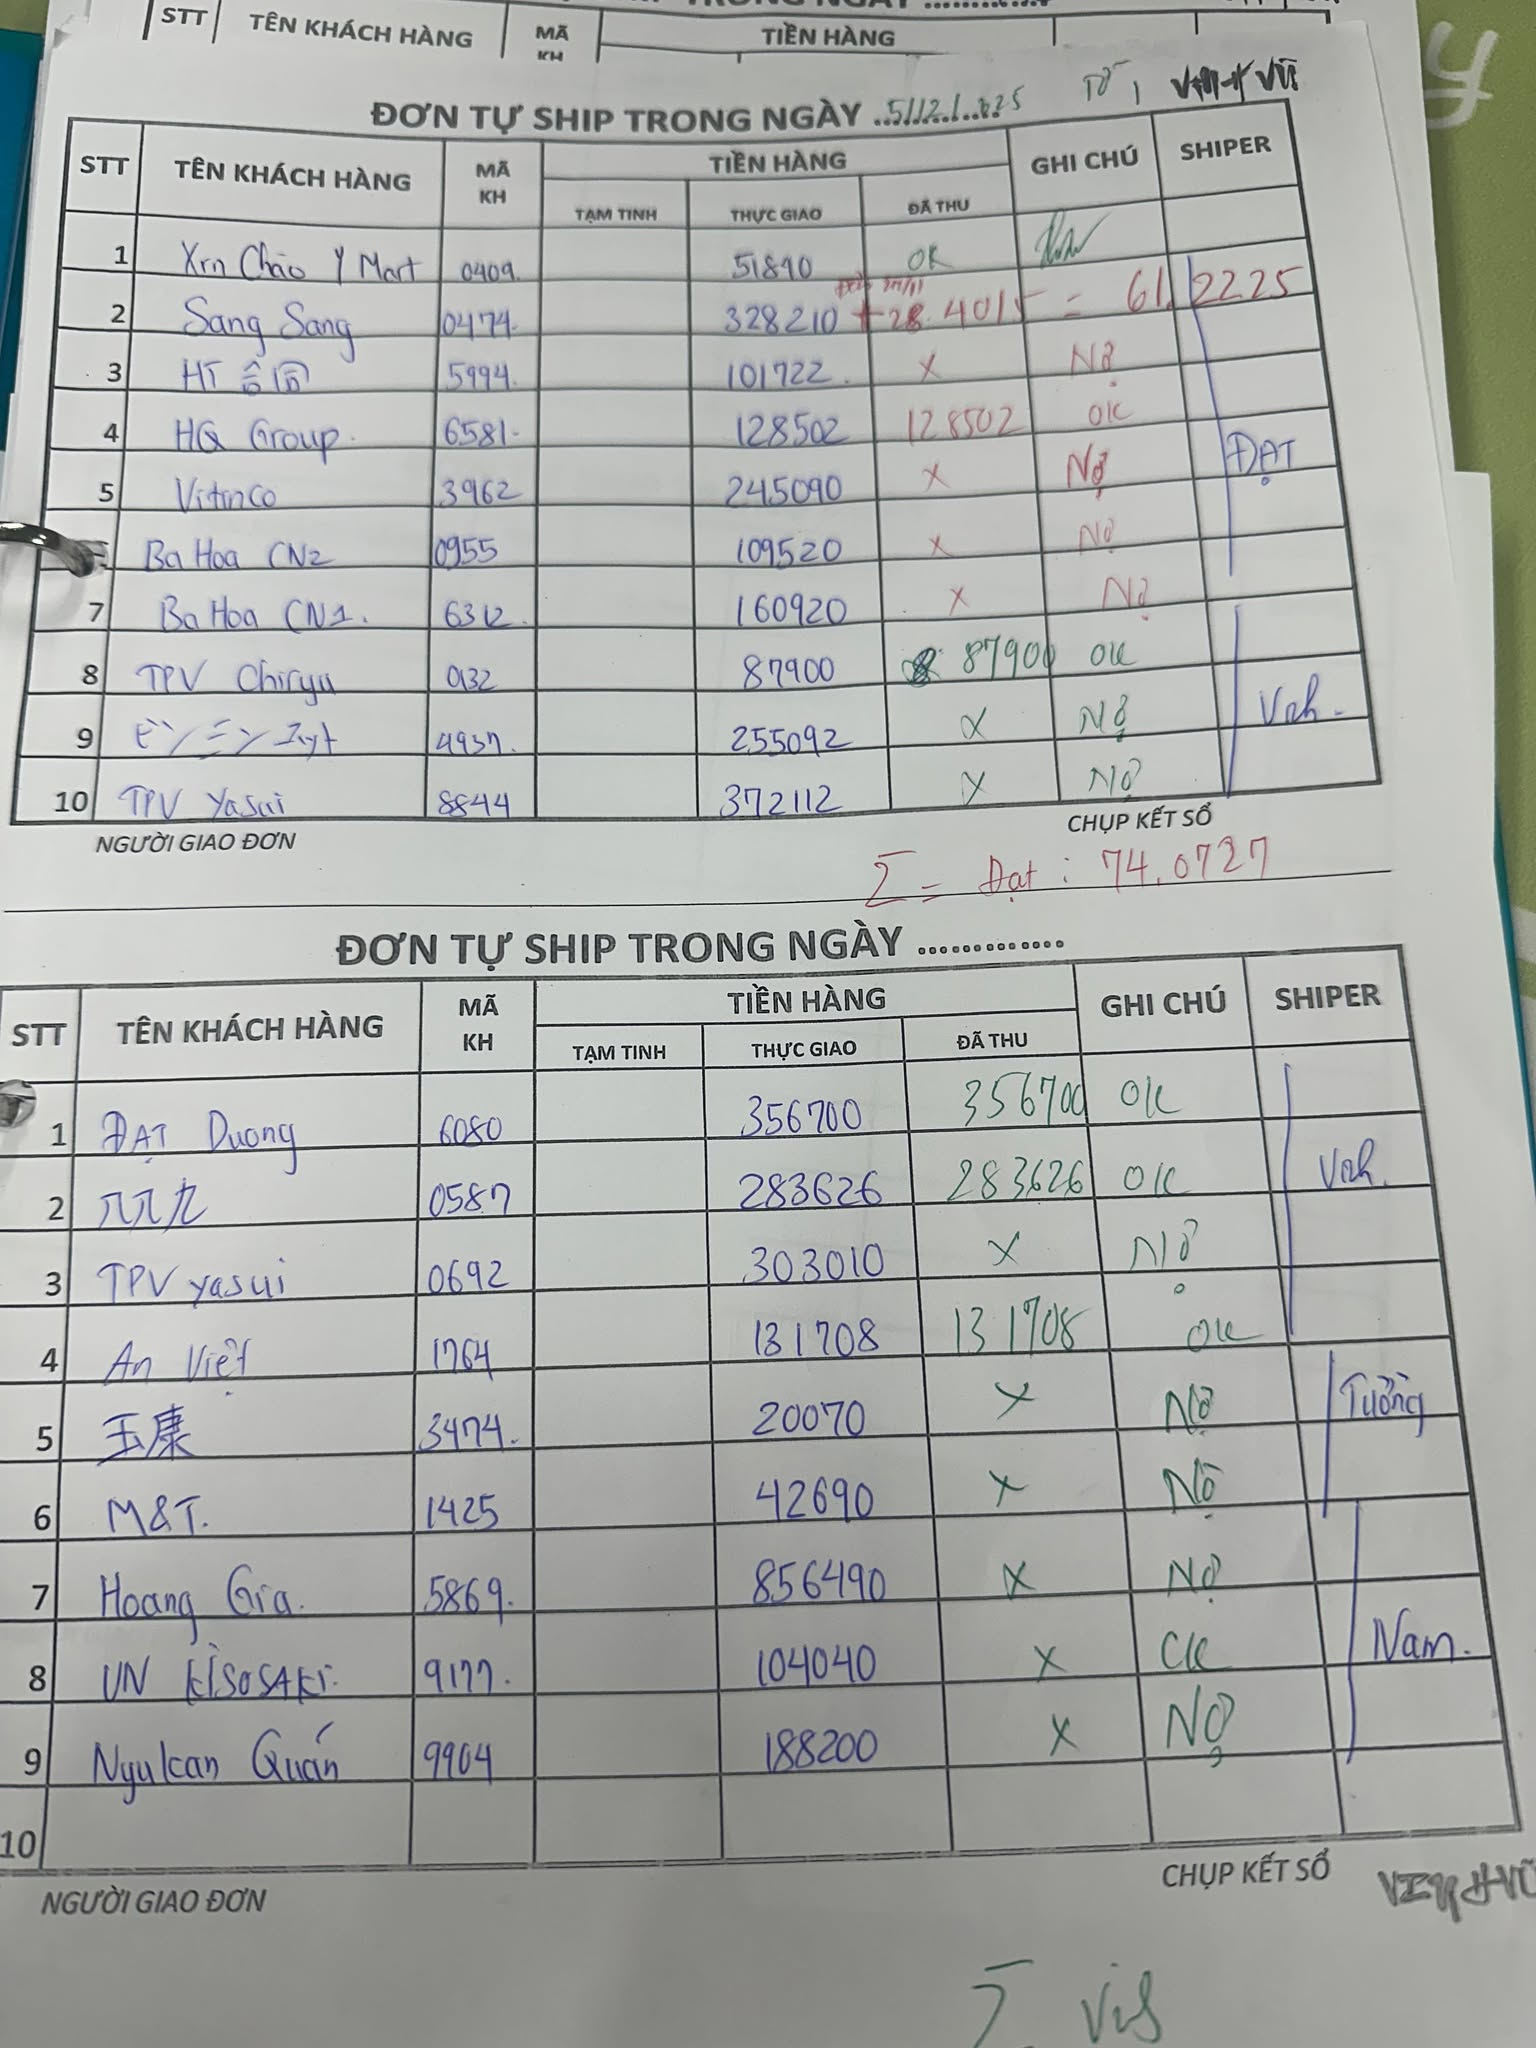 STT TÊN KHÁCH HÀNG MÃ KH TIỀN HÀNG
ĐƠN TỰ SHIP TRONG NGÀY
STT TÊN KHÁCH HÀNG MÃ KH TIỀN HÀNG GHI CHÚ SHIPER
TẠM TINH THỰC GIAO ĐÃ THU
1 Xin Chào Y Mart 0409. 51890 OK
2 Sang Sang 0474. 328210 + 28.4015 = 61.2225
3 HT 5994. 101722. X Nợ
4 HQ Group. 6581. 128502 128502 OK
5 Vitinco 3962 245090 X Nợ ĐẠT
Ba Hoa CN2 0955 109520 X Nợ
7 Ba Hoa CN1. 6312. 160920 X Nợ
8 TPV Chiryu 0132 87900 87900 OK
9 4937. 255092 X Nợ
10 TPV Yasui 8844 372112 X Nợ
NGƯỜI GIAO ĐƠN CHỤP KẾT SỔ
Σ = Đạt : 74.0727
ĐƠN TỰ SHIP TRONG NGÀY .............
STT TÊN KHÁCH HÀNG MÃ KH TIỀN HÀNG GHI CHÚ SHIPER
TẠM TINH THỰC GIAO ĐÃ THU
1 ĐẠT Duong 6080 356700 356700 OK
2 八八九 0587 283626 283626 OK
3 TPV yasui 0692 303010 X Nợ
4 An Việt 1764 131708 131708 OK
5 玉康 3474. 20070 X Nợ Tưởng
6 M&T. 1425 42690 X Nợ
7 Hoang Gia. 5869. 856490 X Nợ
8 VN KISOSAKI. 9177. 104040 X CK Nam.
9 Nyukan Quán 9904 188200 X NỢ
10
NGƯỜI GIAO ĐƠN CHỤP KẾT SỔ
Σ